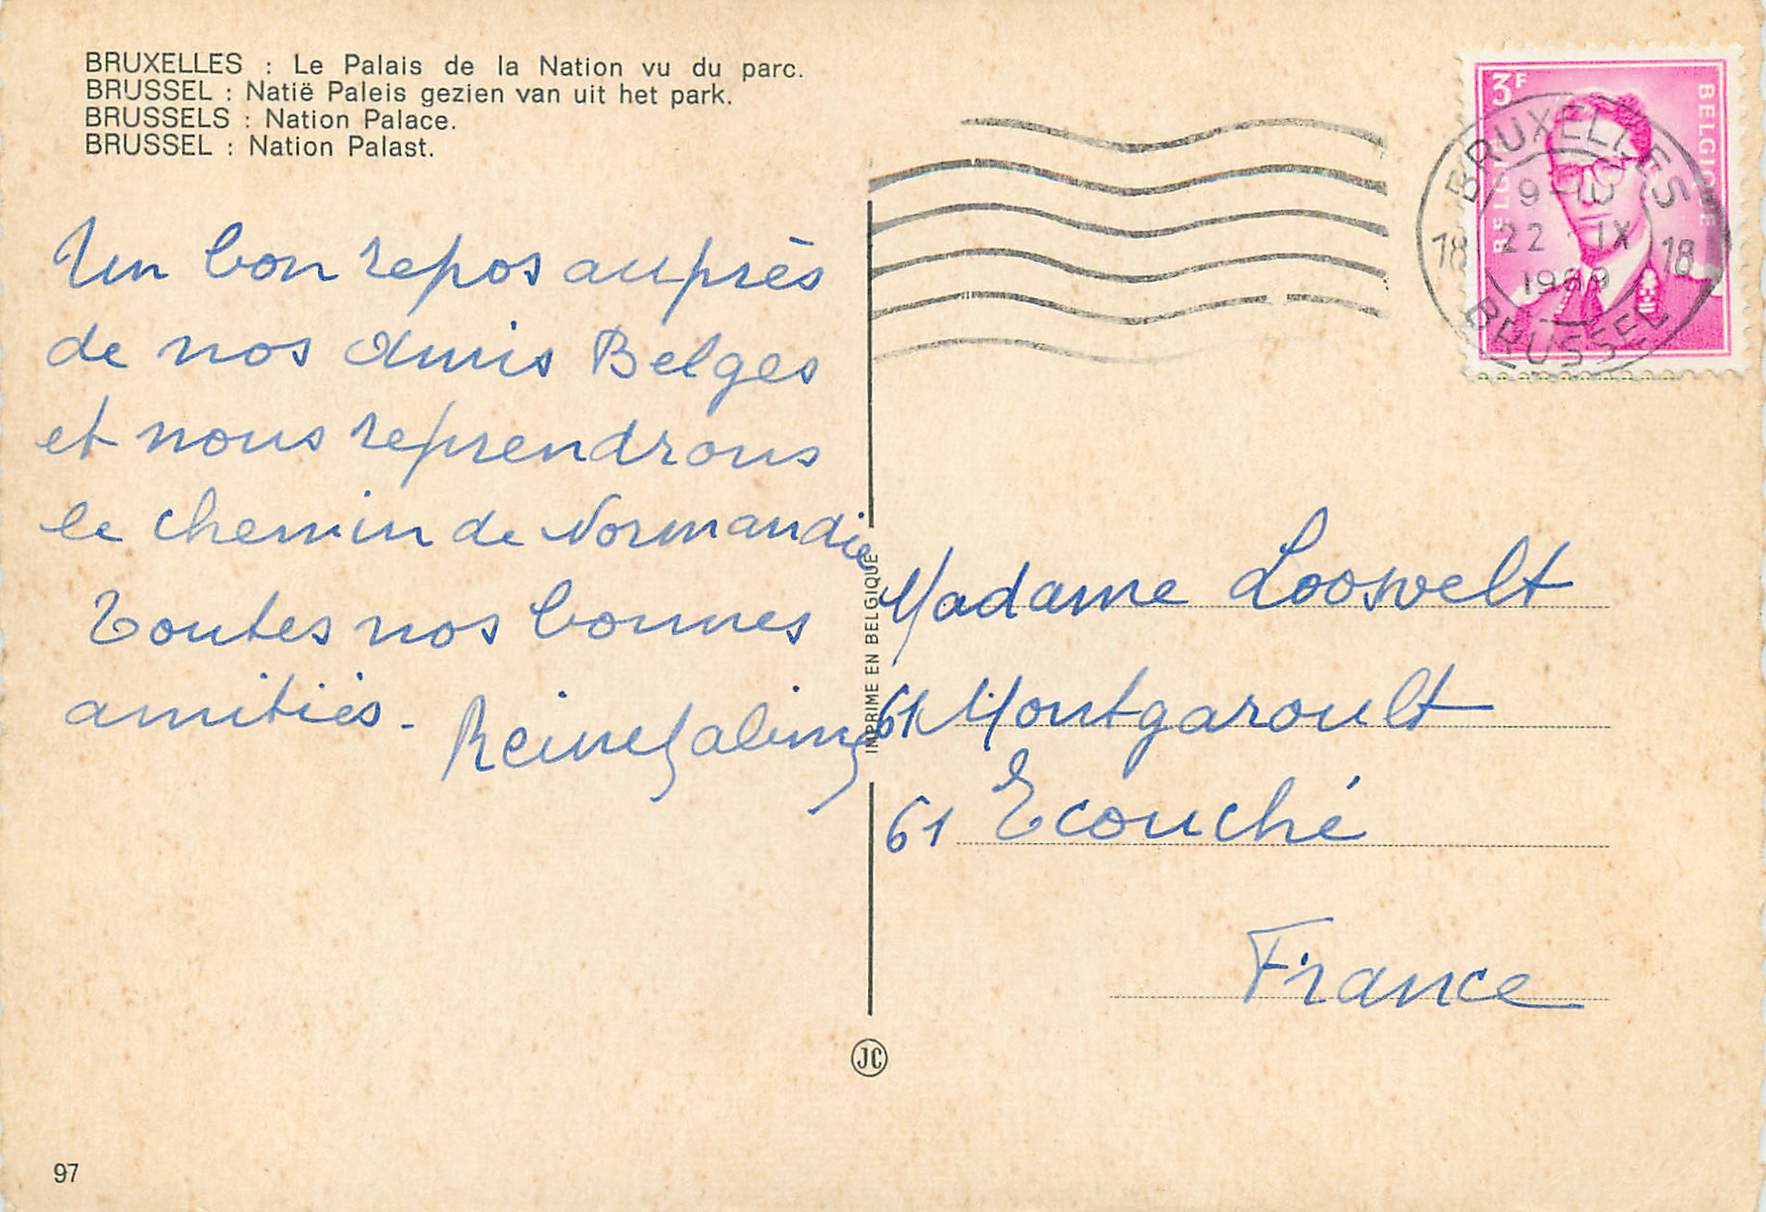 BRUXELLES : Le Palais de la Nation vu du parc.
BRUSSEL : Natië Paleis gezien van uit het park.
BRUSSELS : Nation Palace.
BRUSSEL : Nation Palast.
Un bon repos auprès
de nos amis Belges
et nous reprendrons
le chemin de Normandie
Toutes nos bonnes
amitiés.
IMPRIME EN BELGIQUE
JC
97
3F
BELGIE
BELGIQUE
BRUXELLES
9-10
18 22 IX 18
1969
BRUSSEL
Madame Looswelt
61 Montgaroult
61 Ecouché
France